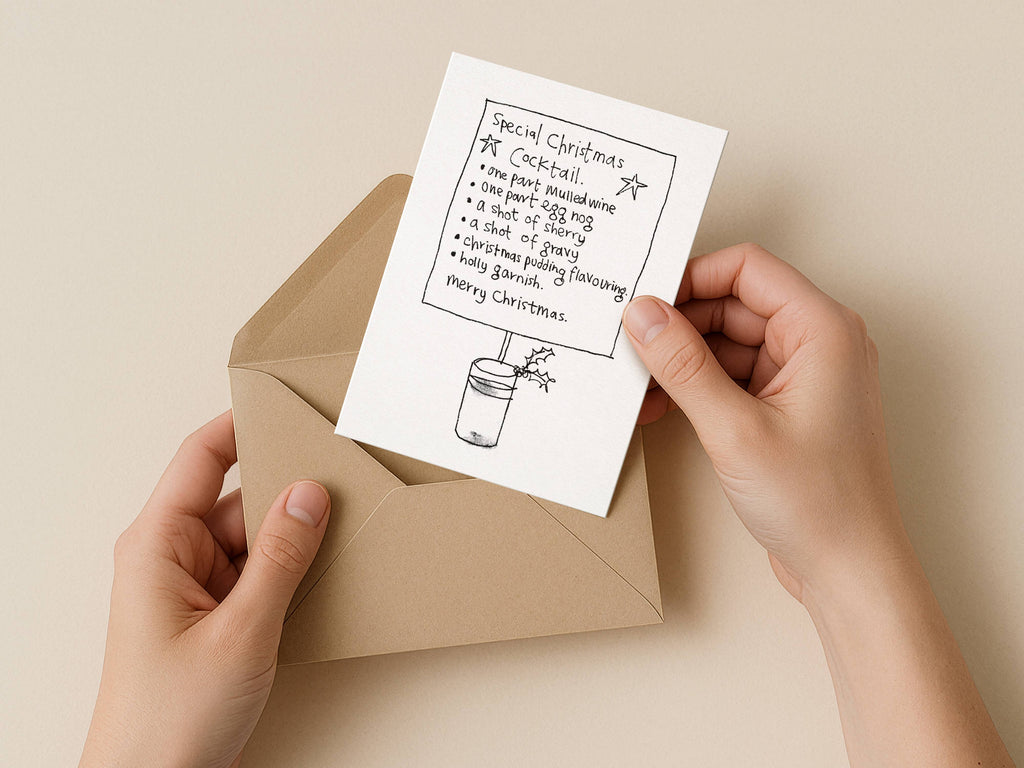 Special Christmas
Cocktail.
• one part mulled wine
• one part egg nog
• a shot of sherry
• a shot of gravy
• christmas pudding flavouring.
• holly garnish.
merry Christmas.